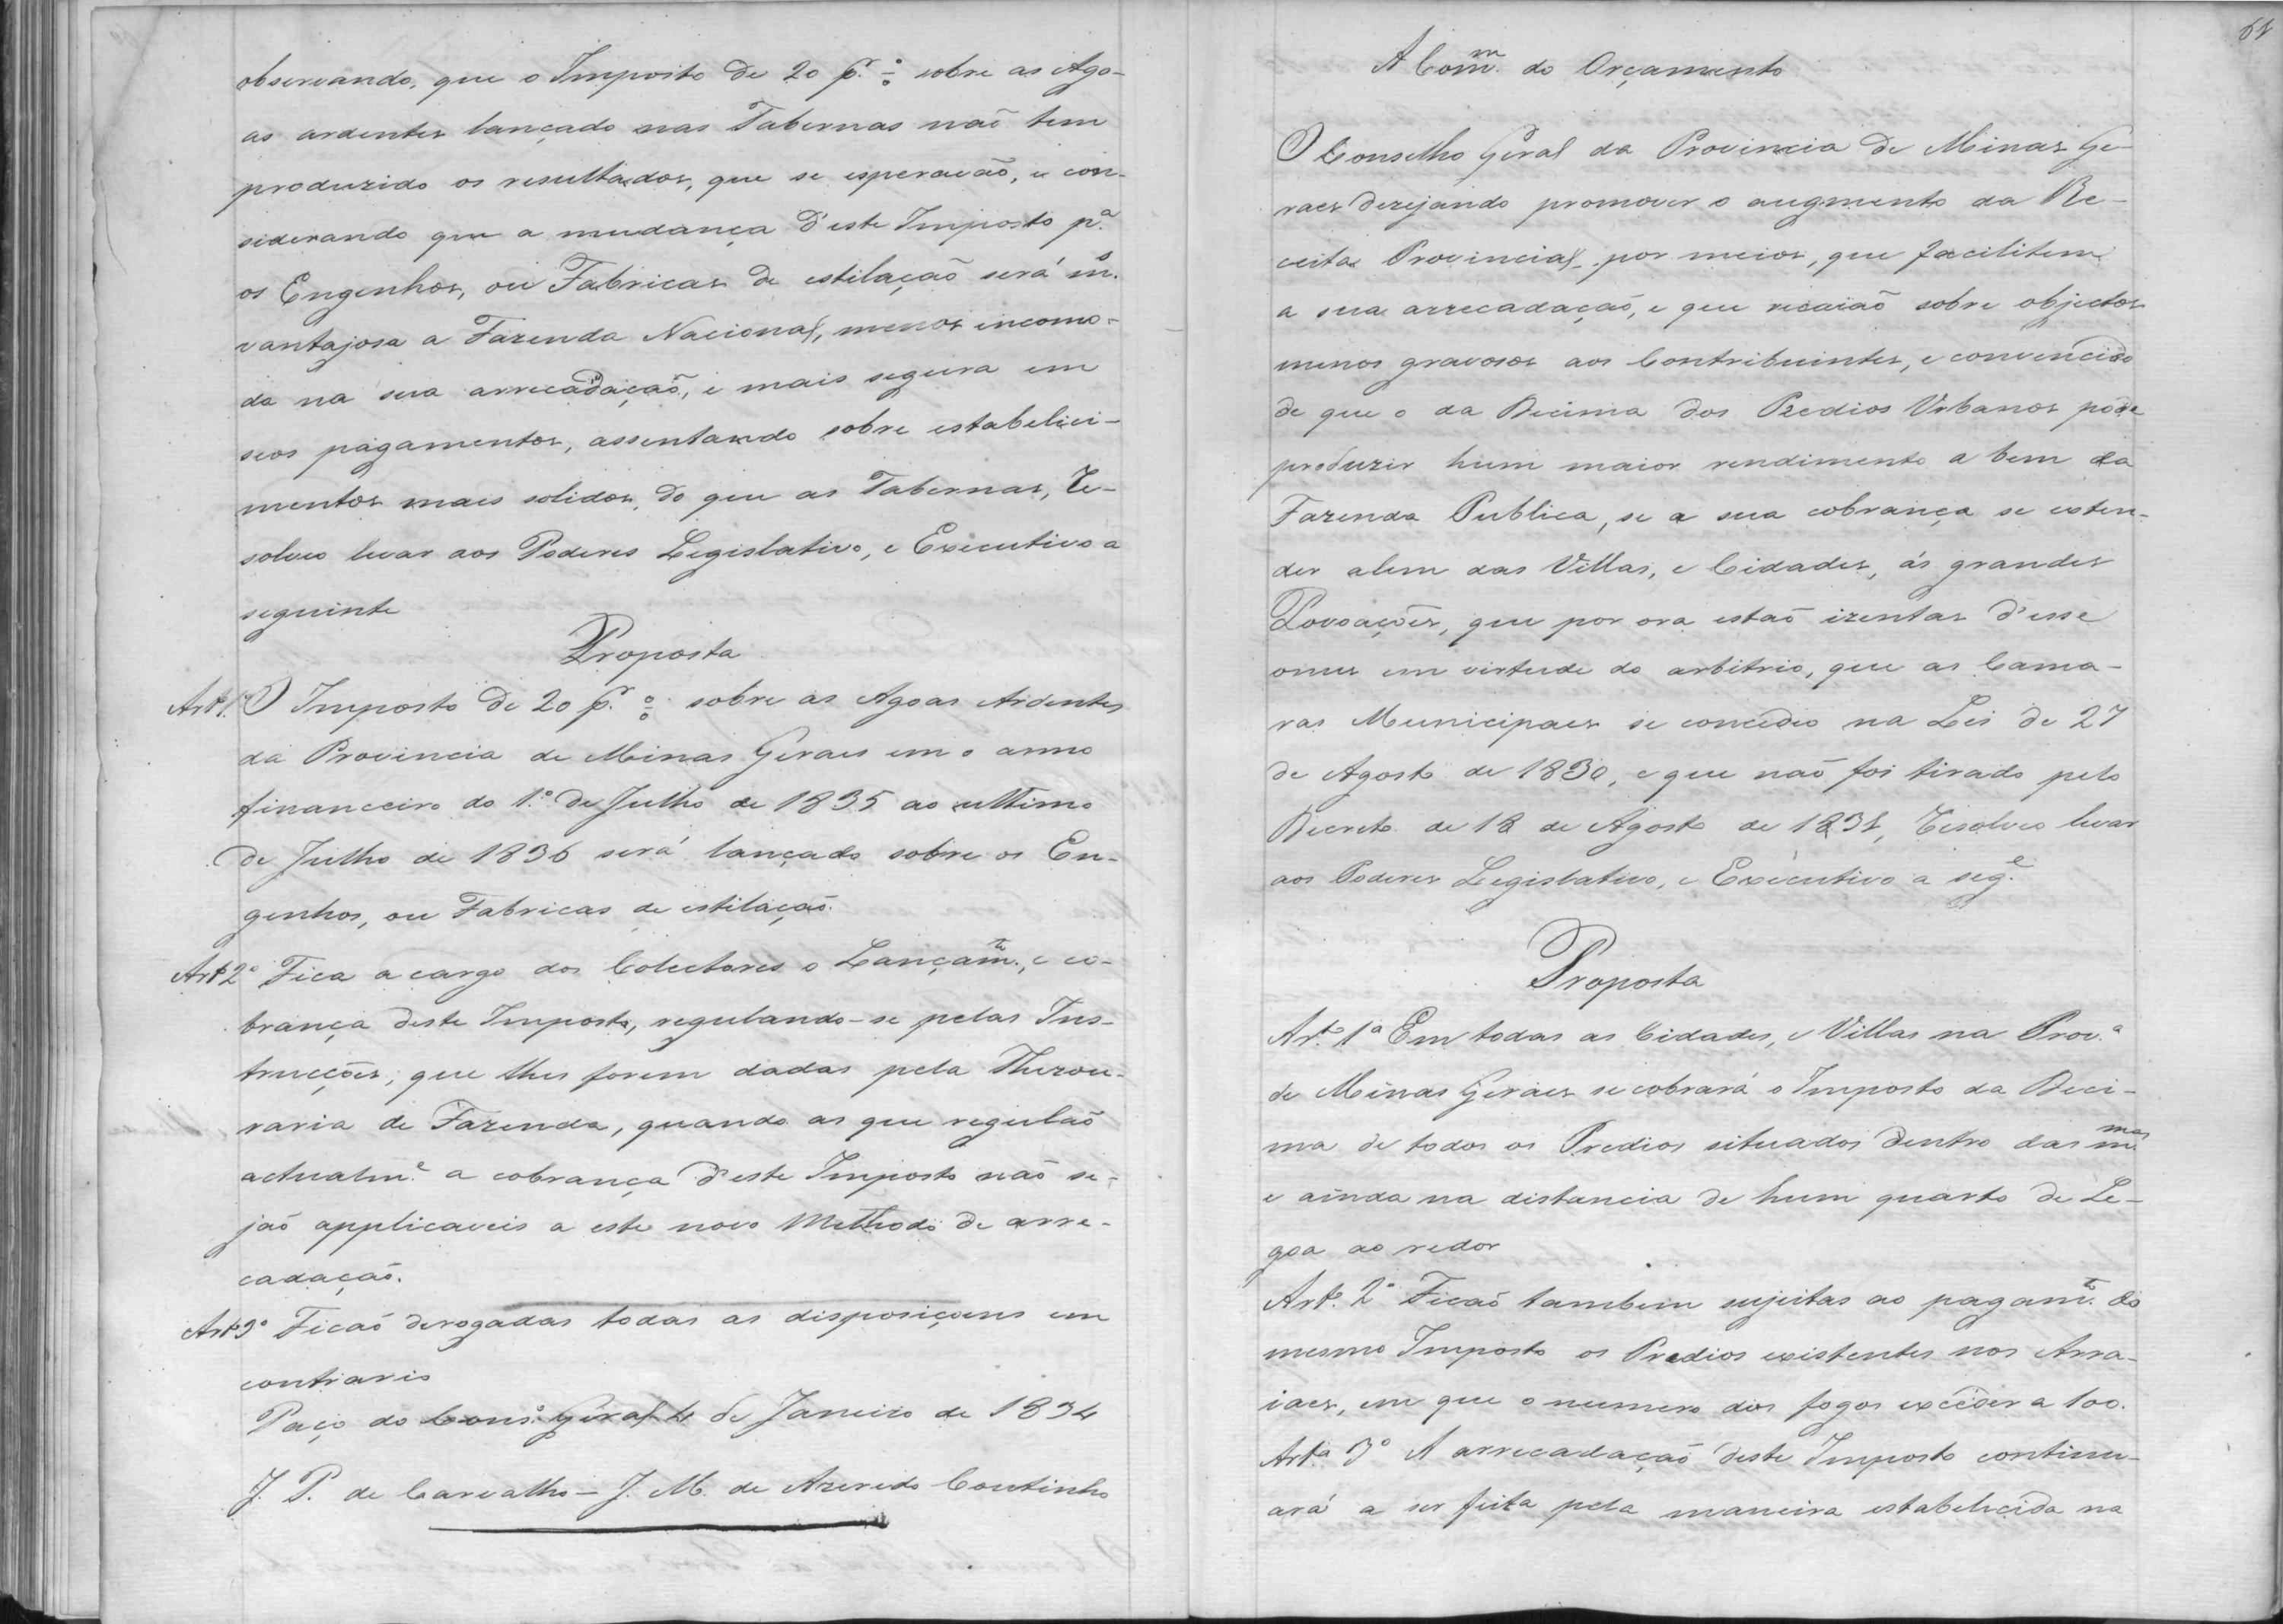 observando, que o Imposto de 20 p.r % sobre as Ago-
as ardentes lançado nas Tabernas naõ tem
produzido os resultados, que se esperavaõ, e con-
siderando que a mudança d'este Imposto p.a
os Engenhos, ou Fabricas de estilaçaõ será m.s
vantajosa a Fazenda Nacional, menos incomo-
da na sua arrecadaçaõ, e mais segura em
seos pagamentos, assentando sobre estabelici-
mentos mais solidos, do que as Tabernas, Re-
solveo levar aos Poderes Legislativo, e Executivo a
seguinte
Proposta
Art.o 1.o O Imposto de 20 p.r % sobre as Agoas Ardentes
da Provincia de Minas Geraes em o anno
financeiro do 1.o de Julho de 1835 ao ultimo
de Julho de 1836 será lançado sobre os En-
genhos, ou Fabricas de estilaçaõ.
Art.o 2.o Fica a cargo dos Colectores o Lançam.to, e co-
brança deste Imposto, regulando-se pelas Ins-
trucções, que lhes forem dadas pela Thezou-
raria de Fazenda, quando as que regulaõ
actualm.e a cobrança d'este Imposto naõ se-
jaõ applicaveis a este novo Methodo de arre-
cadaçaõ.
Art.o 3.o Ficaõ derogadas todas as disposiçoens em
contrario
Paço do Cons.o Geral 4 de Janeiro de 1834
J. P. de Carvalho - J. M. de Azeredo Coutinho
61
A Com.m do Orçamento
O Conselho Geral da Provincia de Minas Ge-
raes dezejando promover o augmento da Re-
ceita Provincial por meios, que facilitem
a sua arrecadaçaõ, e que recaiaõ sobre objectos
menos gravosos aos Contribuintes, e convencido
de que o da Decima dos Predios Urbanos pode
produzir hum maior rendimento a bem da
Fazenda Publica, se a sua cobrança se esten-
der alem das Villas, e Cidades, ás grandes
Povoações, que por ora estaõ izentas d'esse
onus em virtude do arbitrio, que as Cama-
ras Municipaes se concedeo na Lei de 27
de Agosto de 1830, e que naõ foi tirado pelo
Decreto de 18 de Agosto de 1831, Resolveo levar
aos Poderes Legislativo, e Executivo a seg.e
Proposta
Art.o 1.a Em todas as Cidades, e Villas na Prov.a
de Minas Geraes se cobrará o Imposto da Deci-
ma de todos os Predios situados dentro das m.mas
e ainda na distancia de hum quarto de Le-
goa ao redor
Art.o 2.o Ficaõ tambem sujeitas ao pagam.to do
mesmo Imposto os Predios existentes nos Arra-
iaes, em que o numero dos fogos exceder a 100.
Art.o 3.o A arrecadaçaõ deste Imposto continu-
ará a ser feita pela maneira estabelecida na